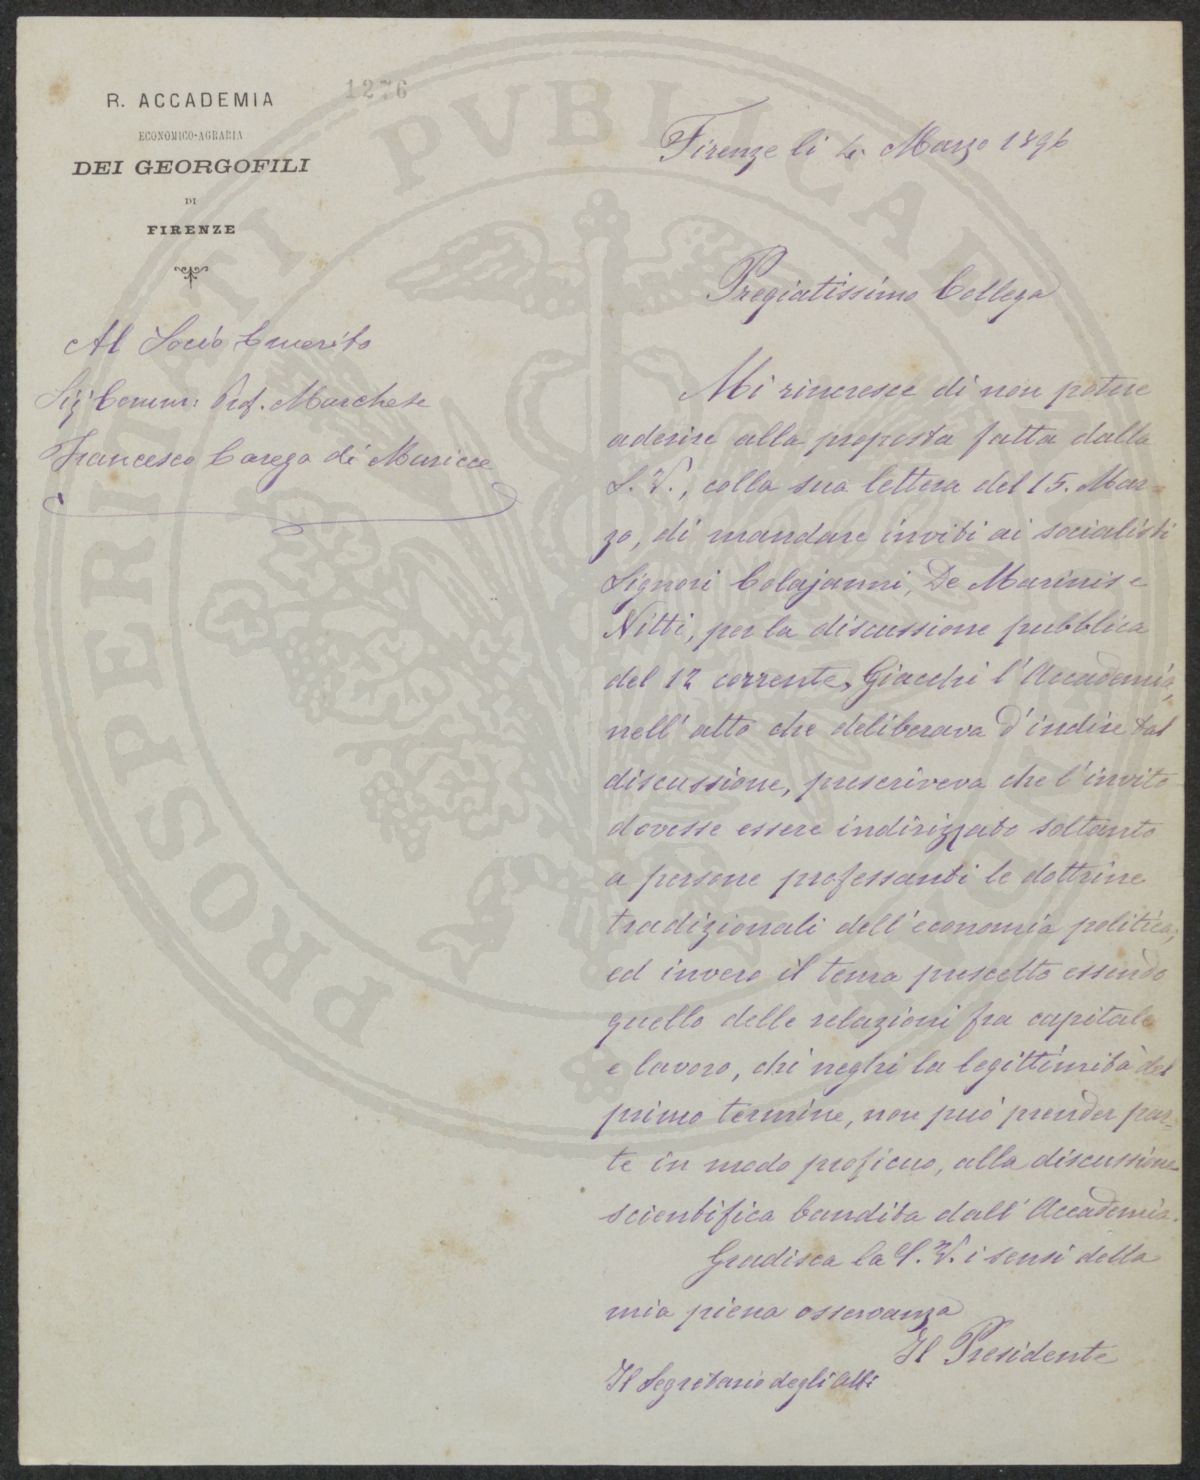 1276
R. ACCADEMIA
ECONOMICO-AGRARIA
DEI GEORGOFILI
DI
FIRENZE
Firenze li 4 Marzo 1896
Al Socio Emerito
Sig Comm: Prof. Marchese
Francesco Carega di Muricce
Pregiatissimo Collega
Mi rincresce di non potere
aderire alla proposta fatta dalla
S. V., colla sua lettera del 15. Mar-
zo, di mandare inviti ai socialisti
Signori Colajanni, De Marinis e
Nitti, per la discussione pubblica
del 12 corrente. Giacchè l'Accademia,
nell'atto che deliberava d'indire tal
discussione, prescriveva che l'invito
dovesse essere indirizzato soltanto
a persone professanti le dottrine
tradizionali dell'economia politica;
ed invero il tema prescelto essendo
quello delle relazioni fra capitale
e lavoro, chi neghi la legittimità del
primo termine, non può prender par-
te in modo proficuo, alla discussione
scientifica bandita dall'Accademia.
Gradisca la S. V. i sensi della
mia piena osservanza
Il Presidente
Il Segretario degli Atti
PROSPERITATI PVBLICAE